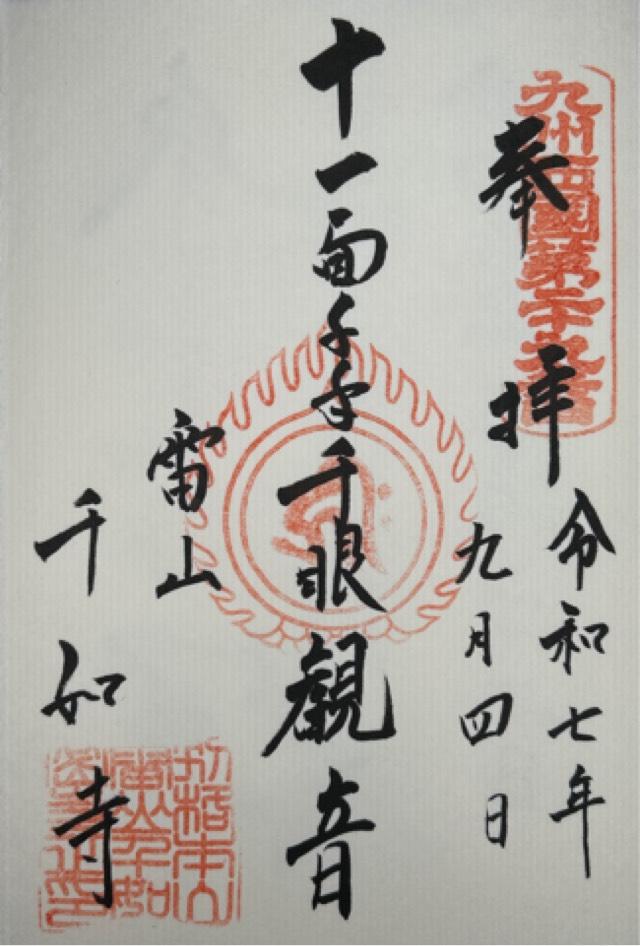 九州西國第二十九番
奉拝
令和七年
九月四日
十一面千手千眼觀音
雷山
千如寺